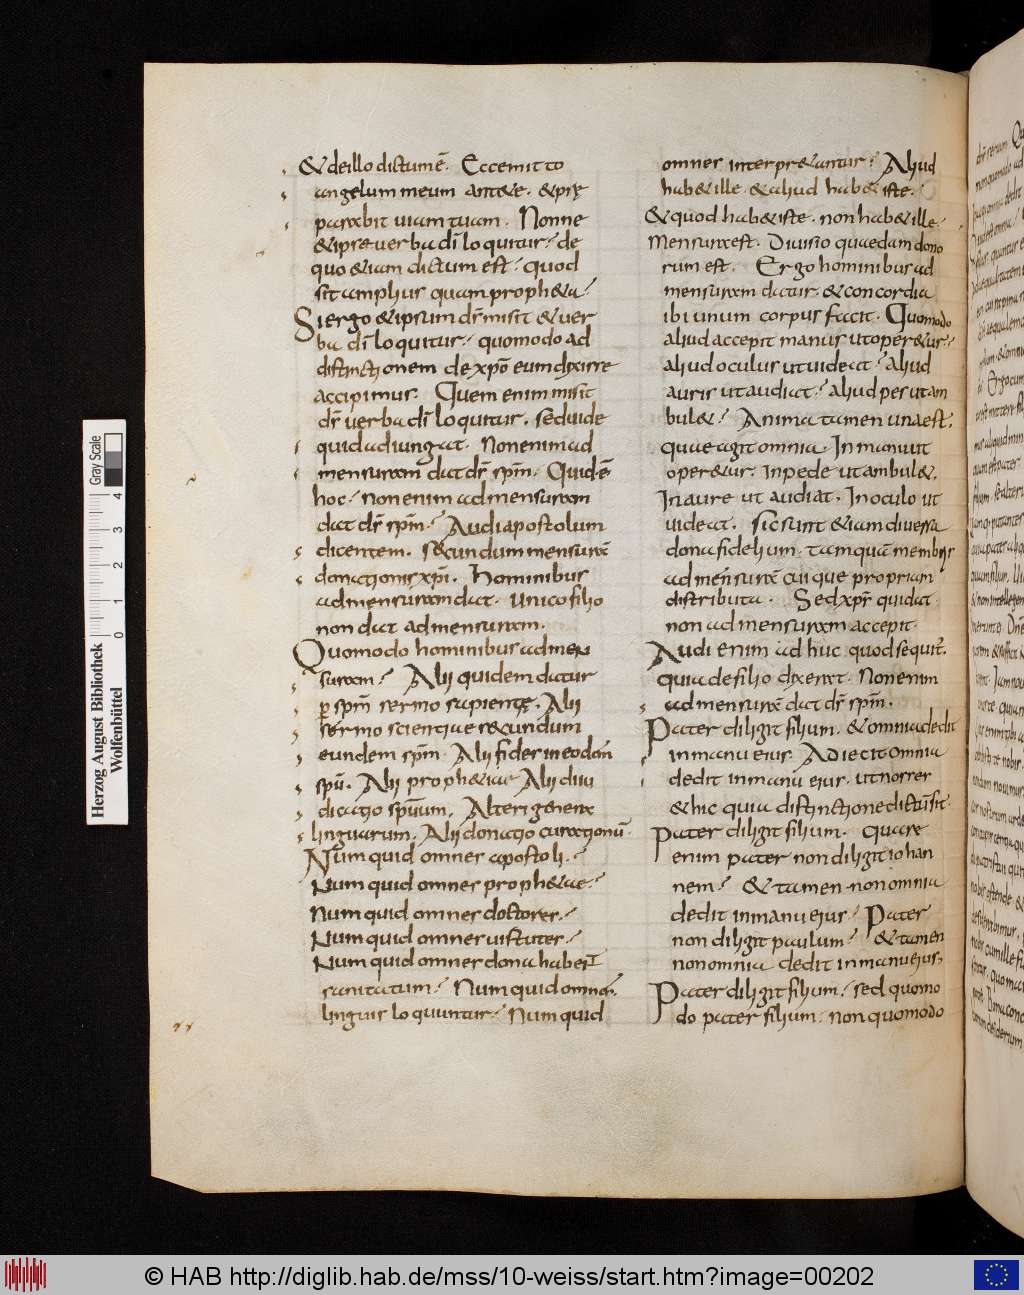 & de illo dictumē. Ecce mitto
angelum meum ant& e. & prę
parabit uiam tuam. Nonne
& ipse uerba dī loquitur? de
quo & iam dictum est? quod
sit amplius quam proph&a?
Si ergo & ipsum dr̄ misit & uer
ba dī loquitur? quomodo ad
distinctionem de xpō eum dixisse
accipimus. Quem enim misit
dr̄ uerba dī loquitur. sed uide
quid adiungat. Non enim ad
mensuram dat dr̄ spm̄. Quid ē
hoc? non enim ad mensuram
dat dr̄ spm̄? Audi apostolum
dicentem. secundum mensurā
donationis xpī. Hominibus
ad mensuram dat. unico filio
non dat ad mensuram.
Quomodo hominibus ad men
suram? Alii quidem datur
ꝑ spm̄ sermo sapientię. Alii
sermo scientiae secundum
eundem spm̄. Alii fides in eodem
spū. Alii proph&ia Alii diiu
dicatio spūum. Alteri genera
linguarum. Alii donatio curationū.
Numquid omnes apostoli?
Numquid omnes proph&ae?
Numquid omnes doctores?
Numquid omnes uirtutes?
Numquid omnes dona habent
sanitatum? Numquid omnes
linguis loquuntur? Numquid
omnes interpr&antur? Aliud
hab& ille. & aliud hab& iste.
& quod hab& iste. non hab& ille.
Mensura est. Diuisio quaedam dono
rum est. Ergo hominibus ad
mensuram datur. & concordia
ibi unum corpus facit. Quomodo
aliud accepit manus ut oper&ur?
aliud oculus ut uideat? aliud
auris ut audiat? aliud pes ut am
bul&? Anima tamen una est.
quae agit omnia. In manu ut
oper&ur. In pede ut ambul&.
In aure ut audiat. In oculo ut
uideat. Sic sunt & iam diuersa
dona fidelium. tamquā membris
ad mensurā cuique propriam
distributa. Sed xpr̄ qui dat
non ad mensuram accepit.
Audi enim adhuc quod sequit̄.
quia de filio dixerat. Non enim
ad mensurā dat dr̄ spm̄.
Pater diligit filium. & omnia dedit
in manu eius. Adiecit omnia
dedit in manu eius. ut nosses
& hic quia distinctione dictū sit.
Pater diligit filium. Quare
enim pater non diligit iohan
nem? & tamen non omnia
dedit in manu eius? Pater
non diligit paulum? & tamen
non omnia dedit in manu eius.
Pater diligit filium? sed quomo
do pater filium. non quomodo
Herzog August Bibliothek
Wolfenbüttel
Gray Scale
0 1 2 3 4
© HAB http://diglib.hab.de/mss/10-weiss/start.htm?image=00202